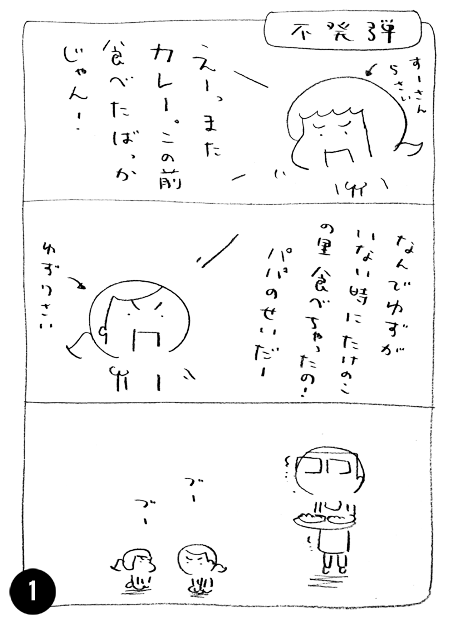 不発弾
すーさん
5さい
えーっまた
カレー。この前
食べたばっか
じゃん!
なんでゆずが
いない時にたけのこ
の里食べちゃったの!
パパのせいだー
ゆず1さい
ブー
ブー
1